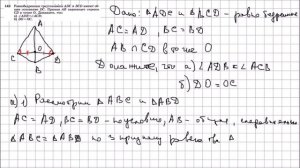 Равнобедренные треугольники ADC и BCD имеют об-
щее основание DC. Прямая AB пересекает отрезок
CD в точке O. Докажите, что:
а) ∠ADB = ∠ACB;
б) DO = OC.
Дано: △ADC и △BCD - равнобедренные
AC = AD , BC = BD
AB ∩ CD в точке O
Доказать, что а) ∠ADB = ∠ACB
б) DO = OC
а) 1) Рассмотрим △ABC и △ABD
AC = AD, BC = BD - по условию, AB - общая, следовательно
△ABC = △ABD по 3 признаку равенства △